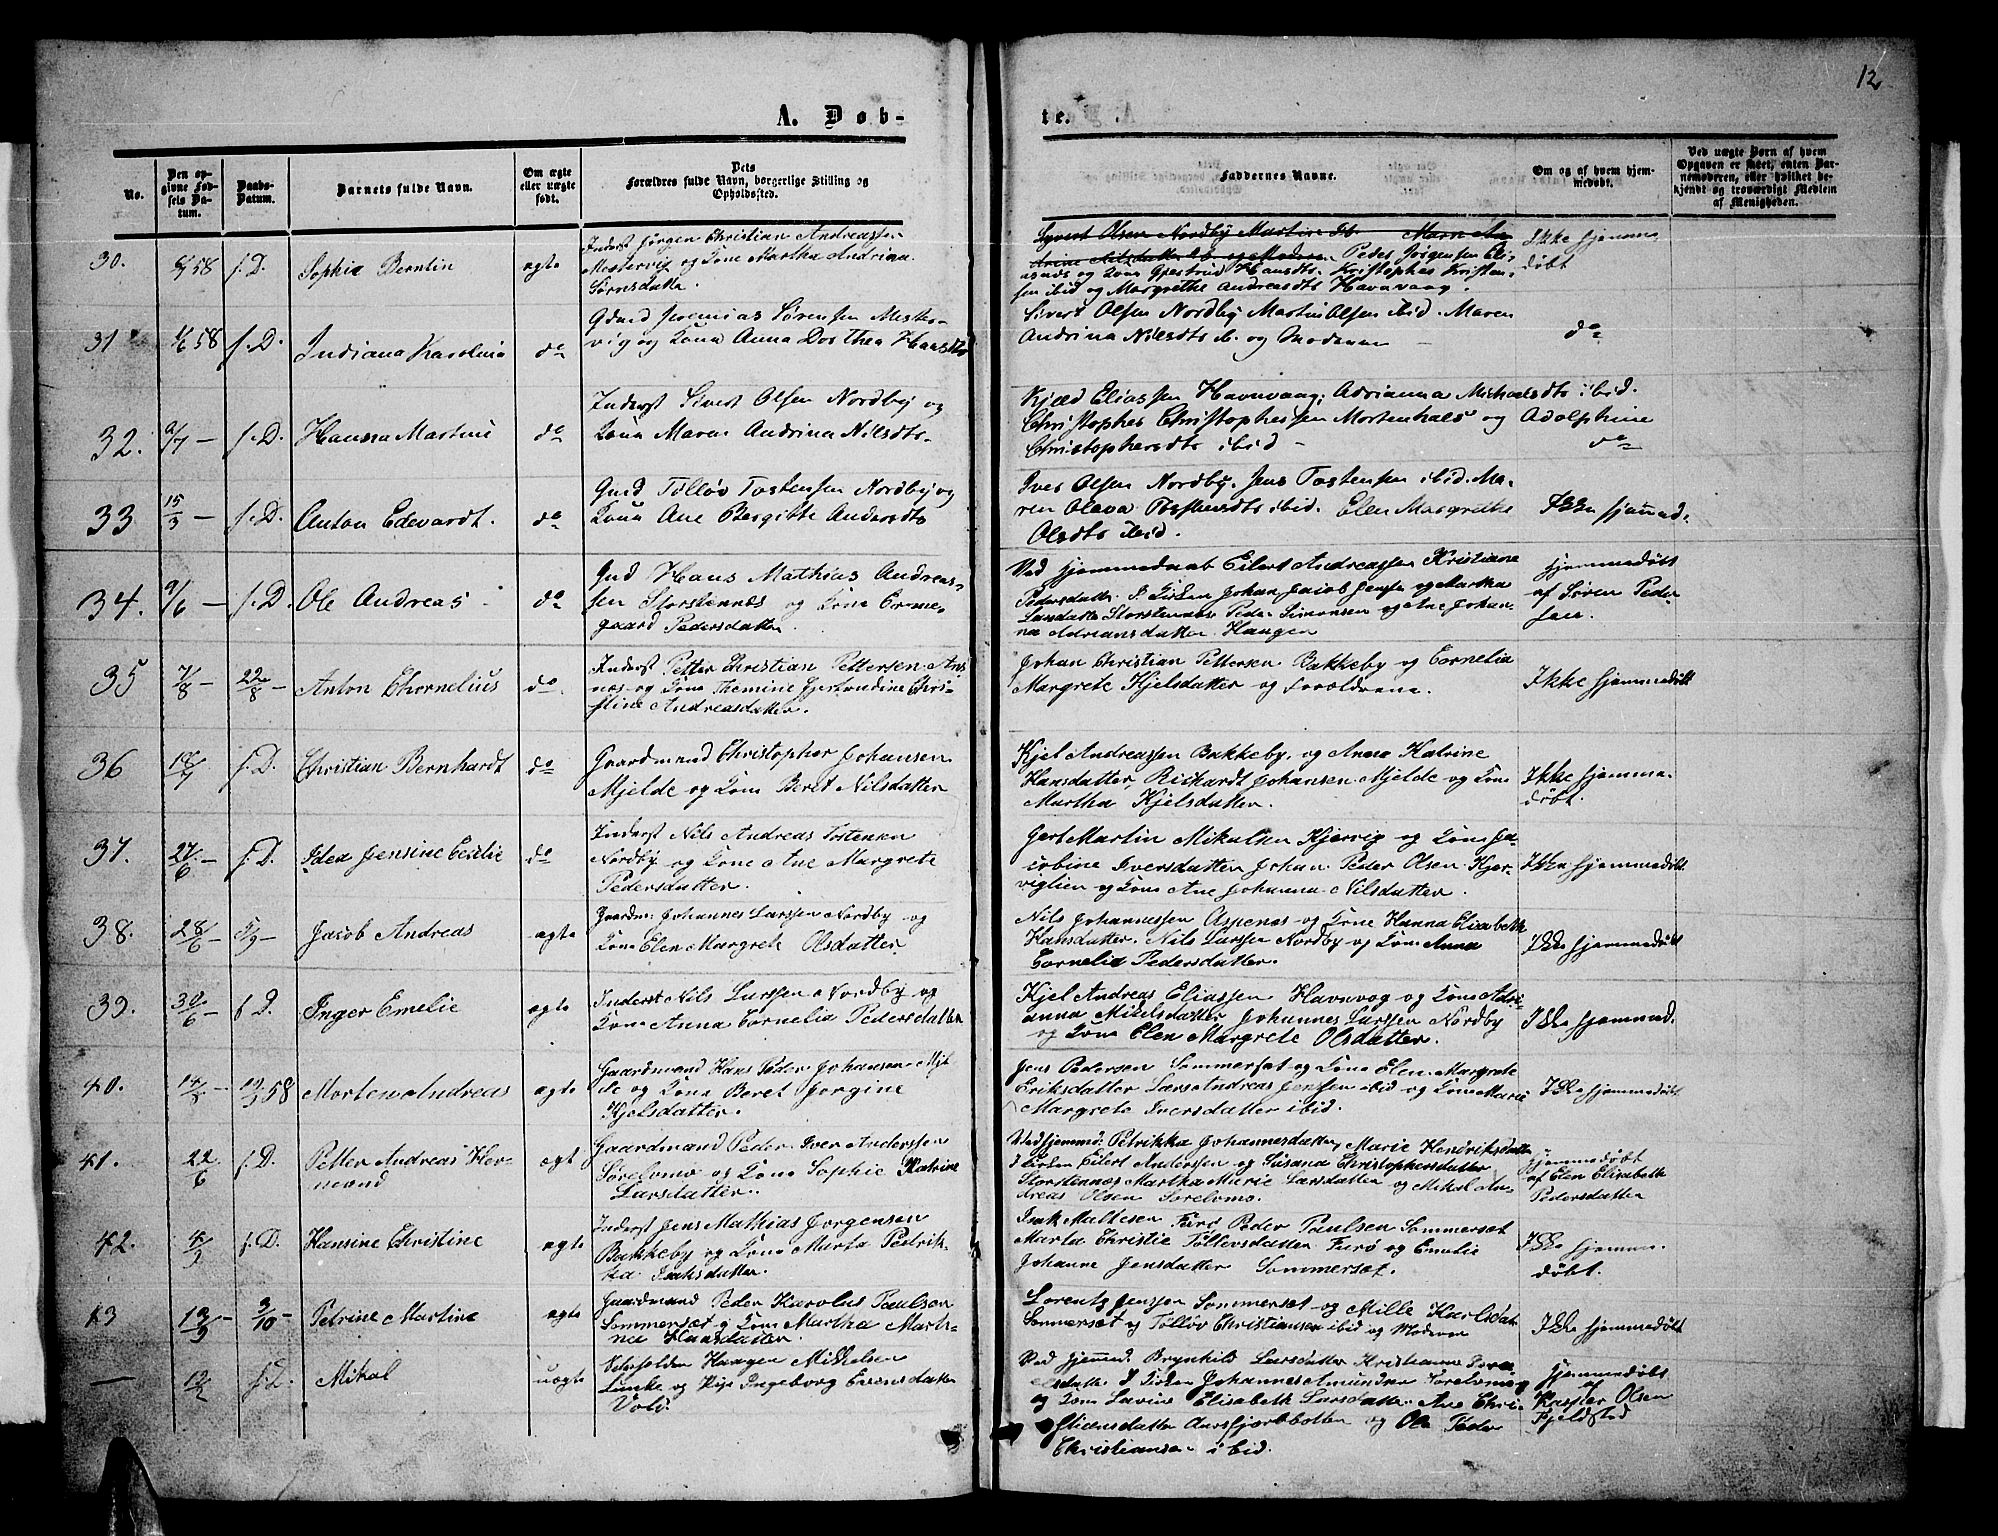 12
A. Døb-
te.
No.
Den op-
givne Fød-
sels Da-
tum.
Daabs-
Datum.
Barnets fulde Navn.
Om ægte
eller uægte
født.
Dets
Forældres fulde Navn, borgerlige Stilling og
Opholdssted.
Faddernes Navne.
Om og af hvem hjem-
medøbt.
Ved uægte Børn af hvem
Opgaven er skeet, enten Bar-
nemoderen, eller hvilket be-
kjendt og troværdigt Medlem
af Menigheden.
30.
58
f. D.
Sophie Berntin
ægte
Inderst Jørgen Christian Andreassen
Mestervig og Kone Martha Andrina
Sørnsdatte
Syvert Olsen Nordby Martin
Peder Jørgensen Eli-
Hansdts. Kristopher Kristen-
sen ibid og Margrethe Andreasdts Havnvaag.
Ikke hjemme
døbt
31
58
f. D.
Indiana Karolina
do
Gdmd Jeremias Sørensen Mester-
vig og Kone Anna Dorthea Hansdts
Sivert Olsen Nordby Martin Olsen ibid. Maren
Andrina Nilsdts ib. og Moderen
do
32.
9/7 —
f. D.
Hanna Martine
do
Inderst Sivert Olsen Nordby og
Kone Maren Andrina Nilsdts.
Kjeld Eliassen Havnvaag; Adrianna Michaelsdts ibid.
Christopher Christophersen Mortenhals og Adolphine
Christophersdts ibid —
do
33
15/3 —
f. D.
Anton Edevardt.
do
Gmd Tølløv Tostensen Nordby og
Kone Ane Bergitte Andersdts
Iver Olsen Nordby. Jens Tostensen ibid. Ma-
ren Oleva Tostensdts ibid. Elen Margrethe
Olsdts ibid.
Ikke hjemmed.
34.
9/6 —
f. D.
Ole Andreas
do
Gmd Hans Mathias Andreas-
sen Storstennæs og Kone Orme-
gaard Pedersdatter.
Ved hjemmedaab Eilert Andreassen Kristiane
Pedersdatter. I Kirken Johan Jacob Jensen og Martha
Larsdatter Storstennæs Peder Simonsen og Ane Johan-
na Adriansdatter Haugen
hjemmedøbt
af Søren Peder
sen.
35
7/8 —
22/8 —
Anton Chornelius
do.
Inderst Petter Christian Pettersen An-
næs og Kone Themine Gjertrudine Chri-
stine Andreasdatter.
Johan Christian Pettersen Bakkeby og Cornelia
Margrete Kjelsdatter og Forældrene.
Ikke hjemmedøbt
36
18/7
f. D.
Christian Bernhardt
do
Gaardmand Christopher Johansen
Mjelde og Kone Beret Nilsdatter
Kjel Andreassen Bakkeby, og Anna Katrine
Hansdatter, Rickardt Johansen Mjelde og Kone
Martha Kjelsdatter.
Ikke hjemme-
døbt.
37.
27/6 —
f. D.
Idea Jensine Cecilie
do
Inderst Nils Andreas Tostensen
Nordby og Kone Ane Margrete
Pedersdatter.
Gert Martin Mikalsen Kjervig og Kone Ja-
cobine Iversdatter Johan Peder Olsen Kjer-
viglien og Kone Ane Johanna Nilsdatter.
Ikke hjemmedøbt
38.
28/6 —
5/9 —
Jacob Andreas
ægte
Gaardm: Johannes Larssen Nordby og
Kone Elen Margrete Olsdatter.
Nils Johannessen Aspenæs og Kone Hanna Elisabeth
Hansdatter. Nils Larssen Nordby og Kone Anna
Cornelia Pedersdatter.
Ikke hjemmedøbt
39.
30/6 —
f. D.
Inger Emelie
ægte
Inderst Nils Larssen Nordby og
Kone Anna Cornelia Pedersdatter
Kjel Andreas Eliassen Havnvog og Kone Adri-
anna Mikelsdatter Johannes Larssen Nordby
og Kone Elen Margrete Olsdatter.
Ikke hjemmed.
40.
58
Morten Andreas
ægte
Gaardmand Hans Peder Johansen Mjel-
de og Kone Beret Jorgine
Kjelsdatter.
Jens Pedersen Sommerset og Kone Elen Margrete
Eriksdatter Lars Andreas Jenssen ibid og Kone Marie
Margrete Iversdatter ibid.
Ikke hjemmedøbt
41.
22/6
f. D.
Petter Andreas Her-
mand
ægt
Gaardmand Peder Iver Anderssen
Sørelvmo og Kone Sophie Katrine
Larsdatter.
Ved hjemmd: Petrikka Johannesdatter, Marie Hendriksdatter
I Kirken Eilert Anderssen og Susana Christophersdatter
Storstennæs Martha Marie Larsdatter og Mikal An-
dreas Olsen Sørelvmo.
hjemmedøbt
af Elen Elisabeth
Pedersdatter
42.
f. D.
Hansine Christine
ægte
Inderst Jens Mathias Jorgensen
Bakkeby og Kone Marta Petrik-
ka Isaksdatter.
Isak Maltesen Furø Peder Paulsen Sommerset
Marta Christie Tølløvsdatter Furø og Emelie
Johanne Jensdatter Sommerset.
Ikke hjemme-
døbt.
43
3/10 —
Petrine Martine
ægte
Gaardmand Peder Karolus Paulsen
Sommerset og Kone Martha Marti-
ne Hansdatter
Lorentz Jenssen Sommerset og Mille Karlsdat
Sommerset og Tølløv Christiansen ibid og Moderen
Ikke hjemmedøbt
—
12/2
f. D.
Mikal
uægte
Haagen Mikkelsen
og Pige Ingeborg
Vold
Ved hjemmed. Brynhild Larsdatter Kristianne
I Kirken Johannes Amundsen Sørelvmo
og Kone Lavine Elisabeth Larsdatter. Ane Chri-
stiansdatter og Ole Peder
Christiansen ibid.
hjemmedøbt
af
Kasper Olsen
Fjeldstad